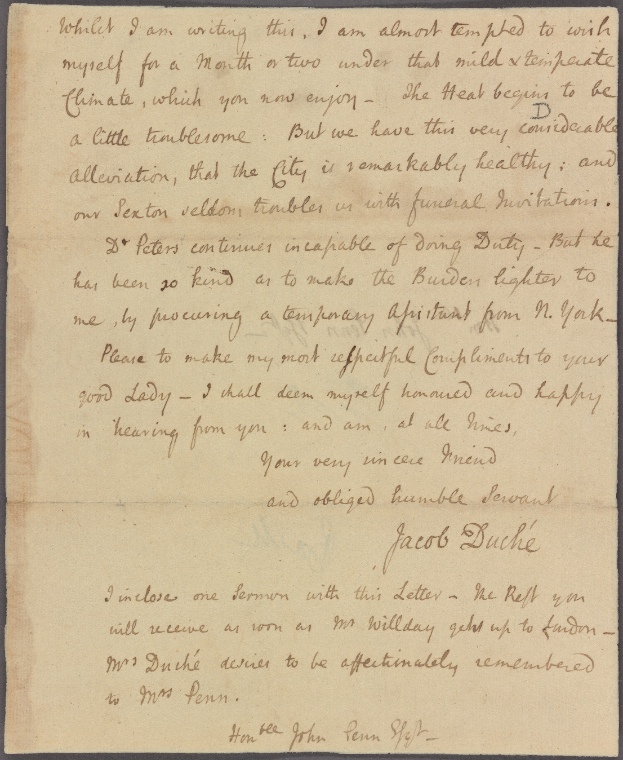 Whilst I am writing this, I am almost tempted to wish
myself for a Month or two under that mild & temperate
Climate, which you now enjoy – The Heat begins to be
D
a little troublesome : But we have this very considerable
Alleviation, that the City is remarkably healthy ; and
our Sexton seldom troubles us with funeral Invitations.
Dr Peters continues incapable of doing Duty – But he
has been so kind as to make the Burden lighter to
me, by procuring a temporary Assistant from N. York –
Please to make my most respectful Compliments to your
good Lady – I shall deem myself honoured and happy
in hearing from you : and am, at all Times,
Your very sincere Friend
and obliged humble Servant
Jacob Duché
I inclose one Sermon with this Letter – The Rest you
will receive as soon as Mr Willday gets up to London –
Mrs Duché desires to be affectionately remembered
to Mrs Penn.
Honble John Penn Esqr –